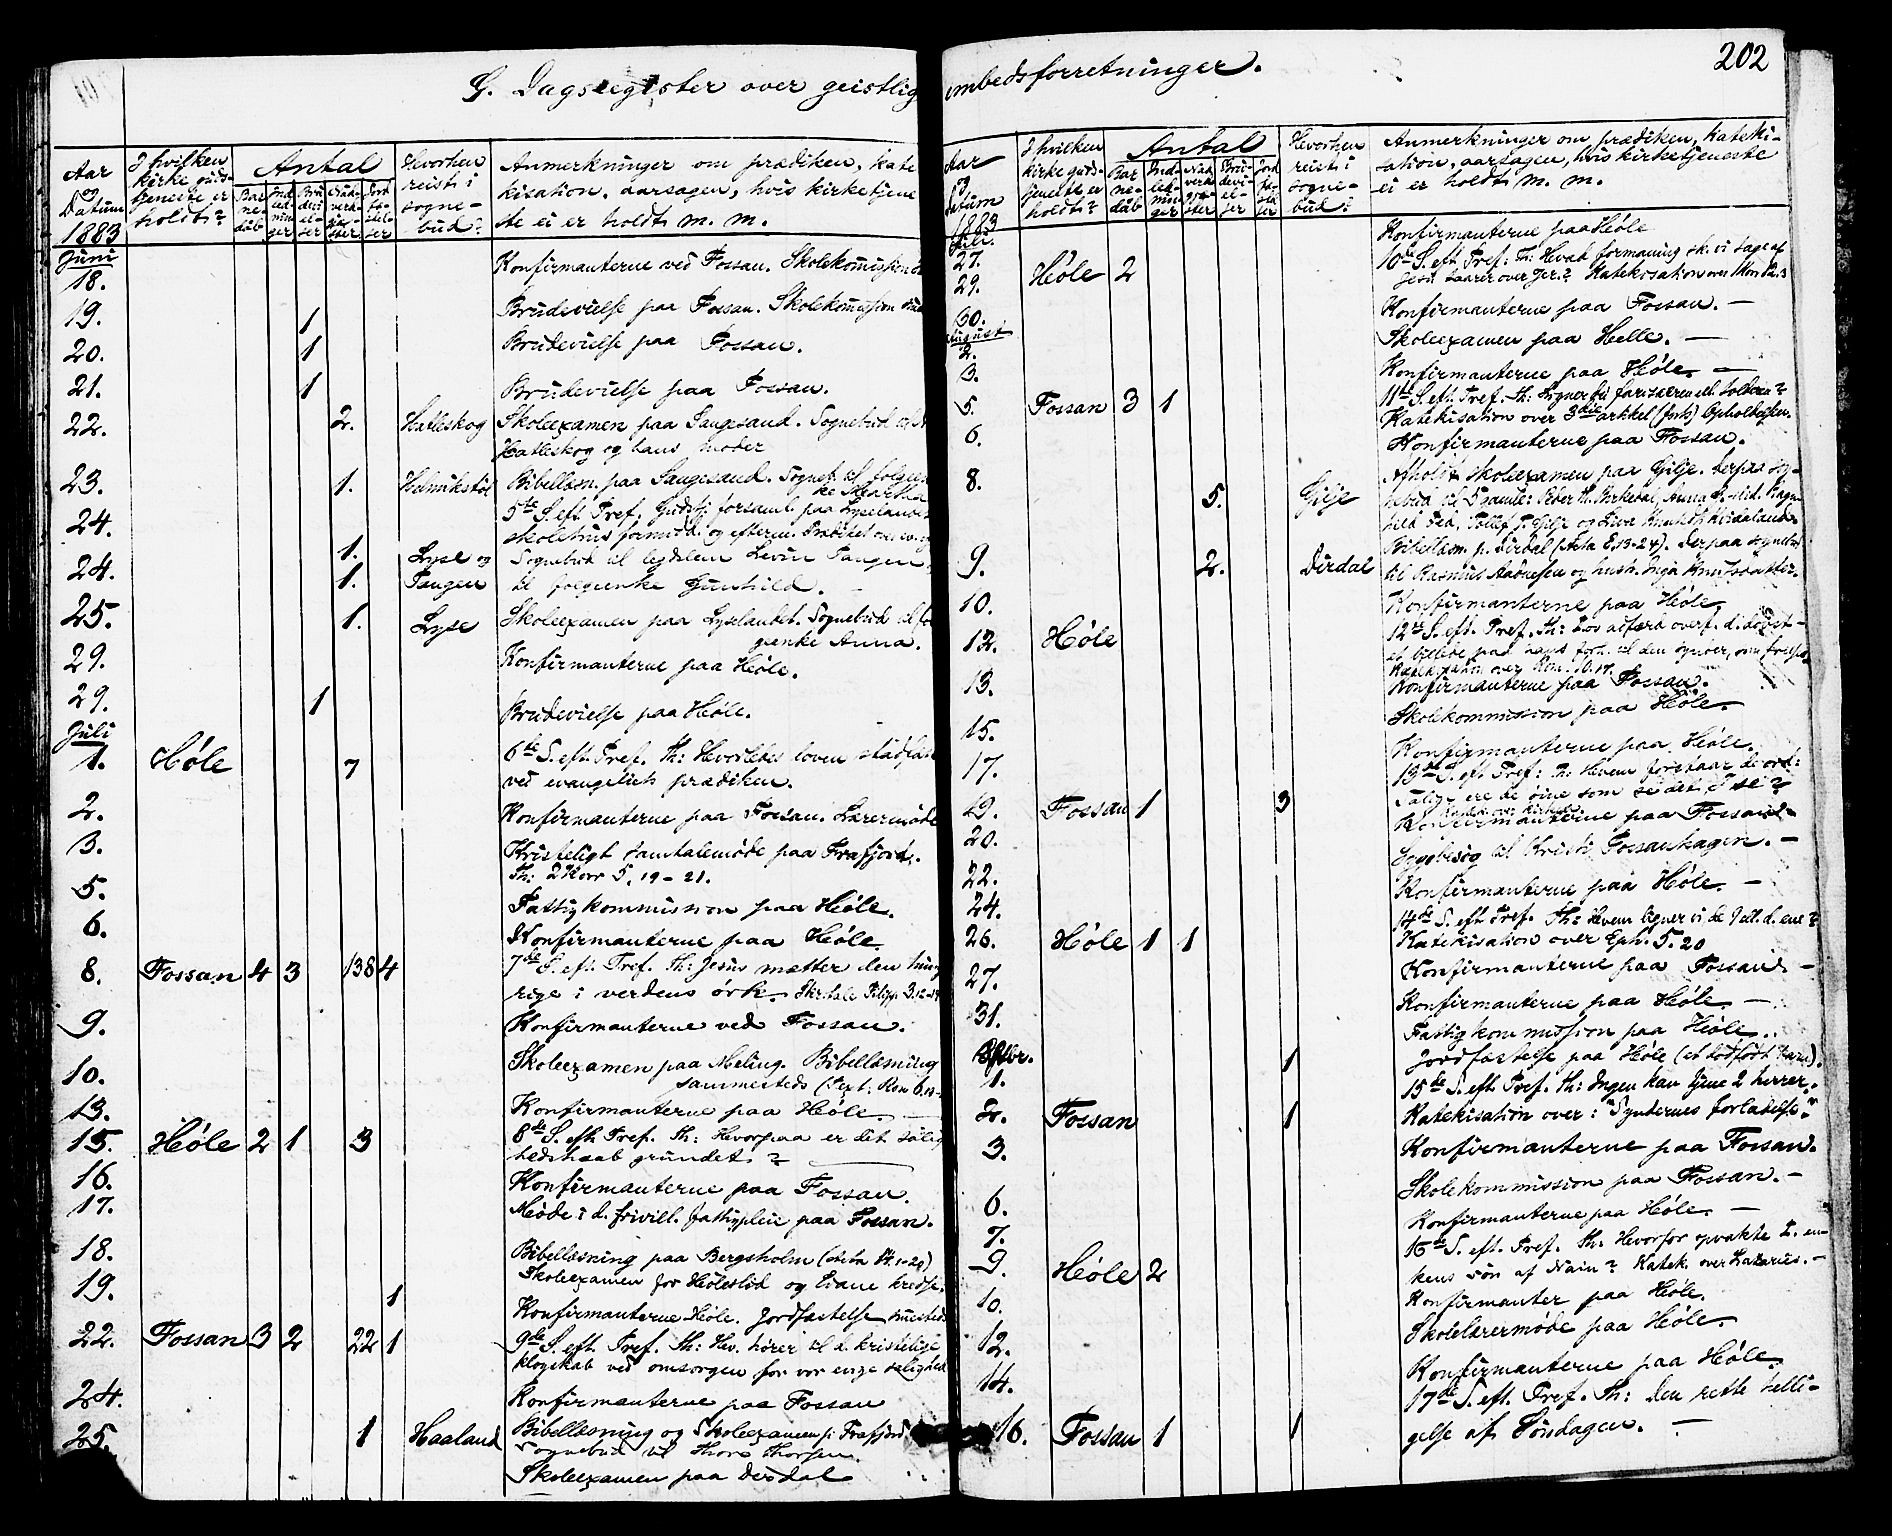 G. Dagsregister over geistlig embedsforretninger.
202
Aar og Datum 1883
I hvilken kirke guds-tjeneste er holdt?
Antal
Bar-ne-daab
Ind-led-nin-ger
Bru-devi-el-ser
Nad-verd-gjæ-ster
Jord-fæ-stel-ser
Hvorhen reist i sogne-bud?
Anmerkninger om prædiken, kate
kisation, aarsagen, hvis kirketjene
ste ei er holdt m. m.
Juni
18. Konfirmanterne ved Fossan. Skolekommission
19. 1 Brudevielse paa Fossan. Skolekommission
20. 1 Brudevielse paa Fossan.
21. 1 Brudevielse paa Fossan.
22. 2. Hatleskog Skoleexamen paa Saugesand. Sognebud til
Hatleskog og hans moder
23. 1. Helmikstøl Bibellæsn. paa Saugesand. Sogneb. til
24. 5te S. eft. Tref. Gudstj. forsaml. paa Lyselandets
skolehus formidd. og efterm. Prædiket over
1. Lyse og Sognebud til Levin Tangen,
24. 1. Tangen til folgeenke Gunhild.
25. 1. Lyse Skoleexamen paa Lyselandet. Sognebud til
genke Anna.
29. Konfirmanterne paa Høle.
29. 1 Brudevielse paa Høle.
Juli
1. Høle 7 6te S. eft. Tref. Th: Hvorledes loven stadfæ
ved evangelisk prædiken.
2. Konfirmanterne paa Fossan. Lærermøde
3. Kristeligt samtalemøde paa Frafjord.
Th: 2 Kor 5, 19-21.
5. Fattigkommission paa Høle.
6. Konfirmanterne paa Høle.
8. Fossan 4 3 138 4 7de S. eft. Tref. Th: Jesus mætter den hung
rige i verdens ørk. Skrtale Filipp 3.12-14
9. Konfirmanterne ved Fossan.
10. Skoleexamen paa Meling. Bibellæsning
sammesteds (Text: Rom 6.
13. Konfirmanterne paa Høle.
15. Høle 2 1 3 8de S. eft. Tref. Th: Hvorpaa er det salig
hedshaab grundet?
16. Konfirmanterne paa Fossan.
17. Møde i d. frivill. fattigpleie paa Fossan.
18. Bibellæsning paa Bergsholm
19. Skoleexamen for Høleslid og Eiane kredse.
1 Konfirmanterne Høle. Jordfæstelse
22. Fossan 3 2 22 1 9de S. eft. Tref. Th: Hv. hører til d. kristelige
klogskab ved omsorgen for vor evige salighed
24. Konfirmanterne paa Fossan
25. 1 Haaland Bibellæsning og Skoleexamen p. Frafjord
Sognebud til Thore Thorsen.
Skoleexamen paa Dirdal
Aar og Datum 1883
I hvilken kirke guds-tjeneste er holdt?
Antal
Bar-ne-daab
Ind-led-nin-ger
Nad-verd-gjæ-ster
Bru-devi-el-ser
Jord-fæ-stel-ser
Hvorhen reist i sogne-bud?
Anmerkninger om prædiken, kateki-
sation, aarsagen, hvis kirketjeneste
ei er holdt m. m.
Juli.
27. Konfirmanterne paa Høle
29. Høle 2 10de S. eft. Tref: Th: Hvad formaning sk. vi tage af
Jesu taarer over Jer.? Katekisation over 1 Kor 12.3
30. Konfirmanterne paa Fossan. —
August
2. Skoleexamen paa Helle. —
3. Konfirmanterne paa Høle. —
5. Fossan 3 1 11te S. eft. Tref. Th: Ligner vi farisæeren ell. tolderen?
Katekisation over 3die artikel
6. Konfirmanterne paa Fossan.
8. Afholdt skoleexamen paa Gilje. Derpaa sog-
5. Gilje nebud til 5 gamle: Peder Birkedal, Anna
Tollef T. Gilje og Liva
Bibellæsn. p. Dirdal (Acta 8.13-24). Derpaa sognebud
9. 2. Dirdal til Rasmus Aadnesen og hustr. Inga Knudsdatter.
10. Konfirmanterne paa Høle.
12. Høle 12te S. eft. Tref. Th: adfærd overf. d. døvst-
et billede paa hans forh. til den synder, som frelses.
Katekisation over Rom. 10.17.
13. Konfirmanterne paa Fossan.
15. Skolekommission paa Høle.
17. Konfirmanterne paa Høle.
19. Fossan 1 3 13de S. eft Tref: Th: Hvem forstaar de ord:
Salige ere de øine som se det, I se?
20. Konfirmanterne paa Fossand.
22. Sygebesøg til Kristi Fossanhagen. —
24. Konfirmanterne paa Høle. —
26. Høle 1 1 14de S. eft Tref. Th: Hvem ligner vi de 9 ell. d. ene?
Katekisation over Eph. 5.20
27. Konfirmanterne paa Fossand —
31. Konfirmanterne paa Høle —
Fattigkommission paa Høle.
Septbr.
1. 1 Jordfæstelse paa Høle (et dødfødt barn).
2. Fossan 1 15de S. eft Tref. Th: Ingen kan tjene 2 herrer.
Katekisation over: "Syndernes forladelse."
3. Konfirmanterne paa Fossan.
6. Skolekommission paa Fossan. —
7. Konfirmanterne paa Høle. —
9. Høle 2 16de S. eft. Tref. Th: Hvorfor opvakte J. en-
kens søn af Nain? Katek. over Lazarus. —
10. Konfirmanter paa Høle.
12. Skolelærermøde paa Høle
14. Konfirmanterne paa Høle.
16. Fossan 1 1 17de S. eft. Tref. Th: Den rette helli-
gelse af Søndagen. —